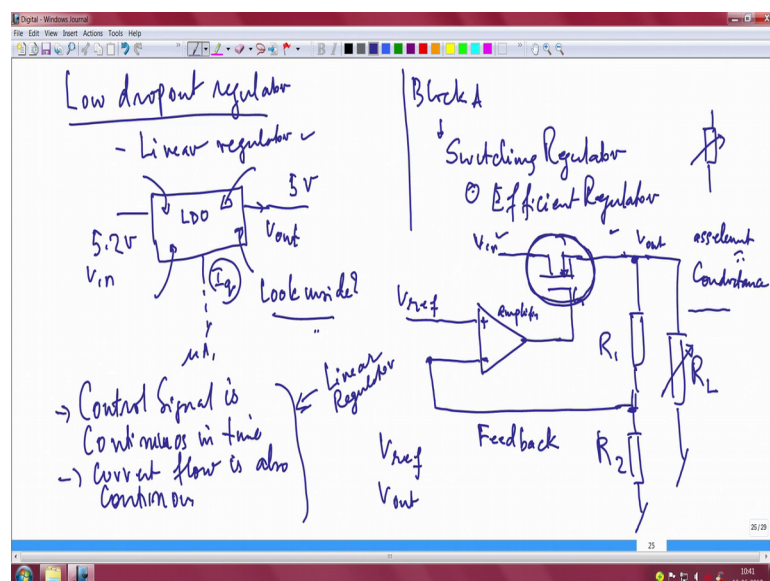 Digital - Windows Journal
File Edit View Insert Actions Tools Help
Low dropout regulator
- Linear regulator
LDO
5V
5.2V
Vin
Vout
Iq
Look inside?
μA,
→ Control Signal is
Continuos in time
→ Current flow is also
Continous
Linear
Regulator
Block A
Switching Regulator
Efficient Regulator
Vin
Vout
Conductance
Vref
amplifier
+
-
R1
RL
Feedback
R2
Vref
Vout
25/29
25
10:41